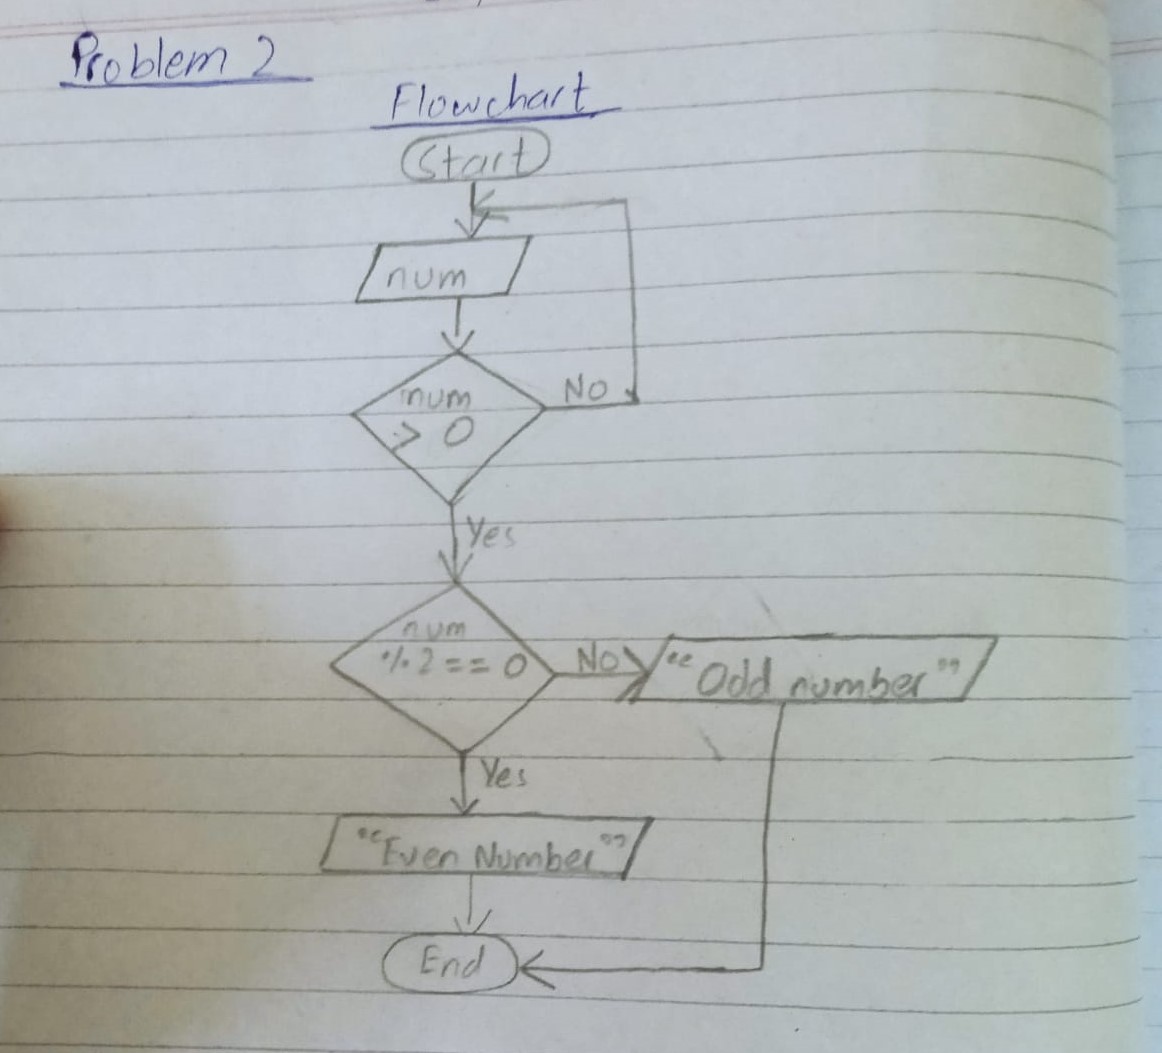 Problem 2
Flowchart
Start
num
num
> 0
No
Yes
num
% 2 == 0
No
"Odd number"
Yes
"Even Number"
End